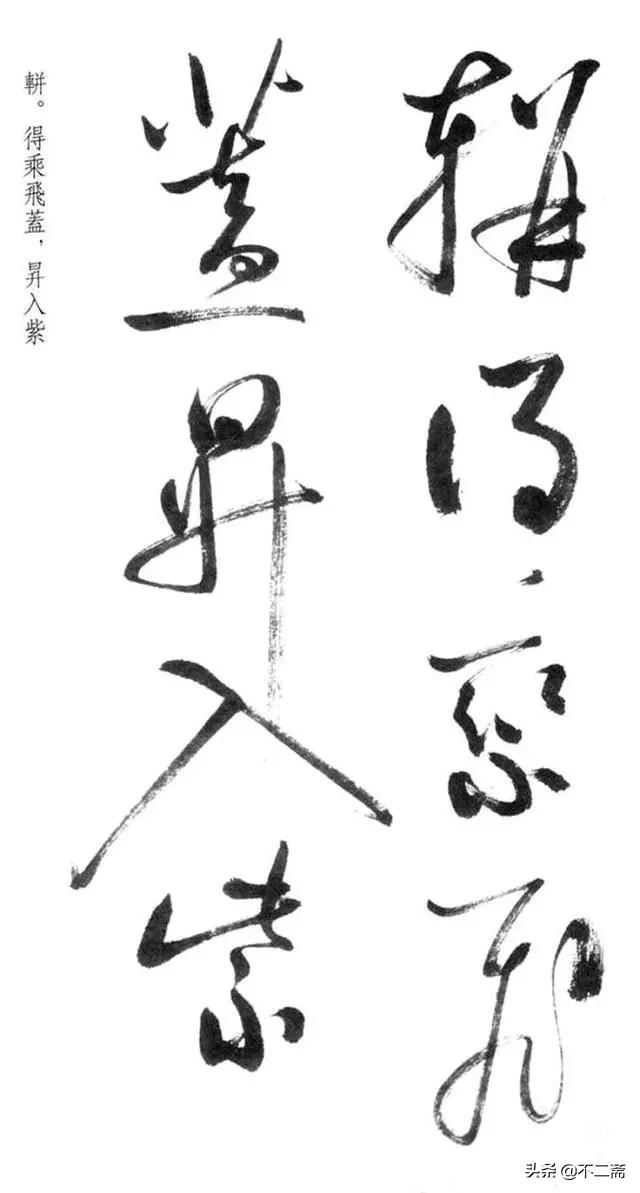 軿得乘飛
蓋昇入紫
軿。得乘飛蓋，昇入紫
头条@不二斋